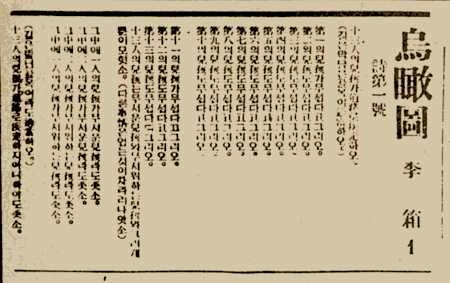 烏瞰圖 李箱 1
詩第一號
十三人의兒孩가道路로疾走하오.
(길은막달은골목이適當하오.)
第一의兒孩가무섭다고그리오.
第二의兒孩도무섭다고그리오.
第三의兒孩도무섭다고그리오.
第四의兒孩도무섭다고그리오.
第五의兒孩도무섭다고그리오.
第六의兒孩도무섭다고그리오.
第七의兒孩도무섭다고그리오.
第八의兒孩도무섭다고그리오.
第九의兒孩도무섭다고그리오.
第十의兒孩도무섭다고그리오.
第十一의兒孩가무섭다고그리오.
第十二의兒孩도무섭다고그리오.
第十三의兒孩도무섭다고그리오.
十三人의兒孩는무서운兒孩와무서워하는兒孩와그러케
뿐이모혓소.(다른事情은업는것이차라리나앗소)
그中에一人의兒孩가무서운兒孩라도좃소.
그中에二人의兒孩가무서운兒孩라도좃소.
그中에二人의兒孩가무서워하는兒孩라도좃소.
그中에一人의兒孩가무서워하는兒孩라도좃소.
(길은뚤닌골목이라도適當하오.)
十三人의兒孩가道路로疾走하지아니하야도좃소.